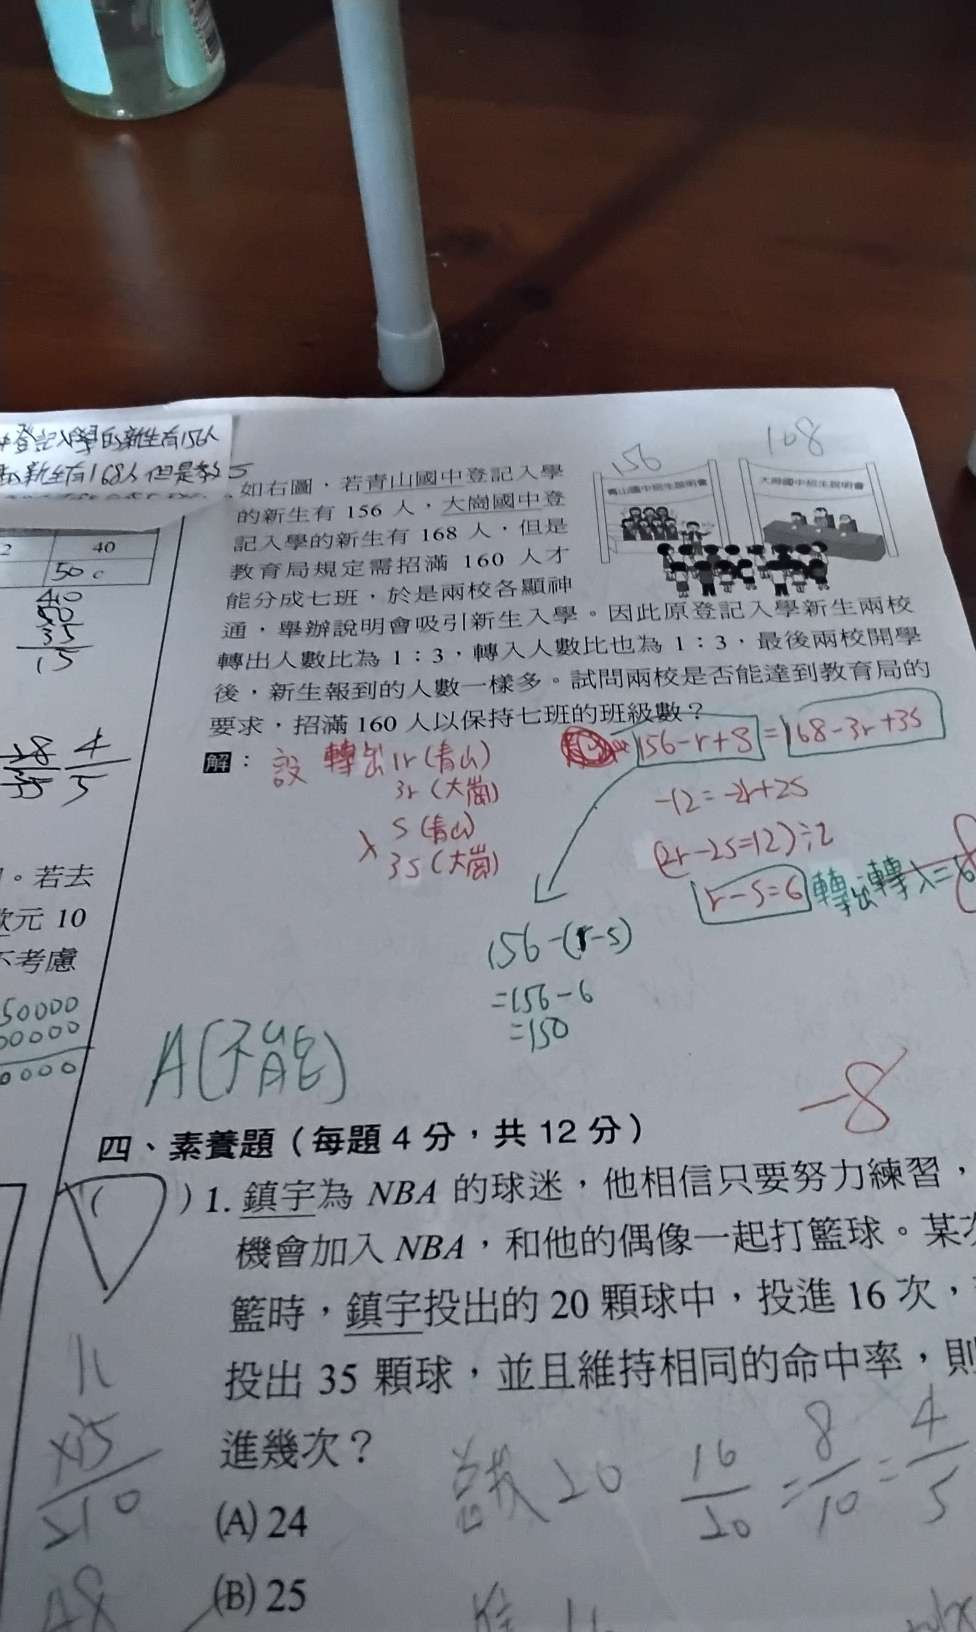 登記入學的新生有156人
新生有168人但是教
156
168
青山國中招生說明會
大崗國中招生說明會
如右圖,若青山國中登記入學
的新生有 156 人,大崗國中登
記入學的新生有 168 人,但是
教育局規定需招滿 160 人才
能分成七班,於是兩校各顯神
通,舉辦說明會吸引新生入學。因此原登記入學新生兩校
轉出人數比為 1:3,轉入人數比也為 1:3,最後兩校開學
後,新生報到的人數一樣多。試問兩校是否能達到教育局的
要求,招滿 160 人以保持七班的班級數?
解:
設 轉出 1r (青山)
3r (大崗)
入 s (青山)
3s (大崗)
156-r+s=168-3r+3s
-12=-2r+2s
(2r-2s=12)÷2
r-s=6
156-(r-s)
=156-6
=150
A(不能)
-8
2
40
50
40
50
35
15
28
35
4
5
。若去
歐元 10
不考慮
50000
00000
0000
四、素養題(每題 4 分,共 12 分)
( )1. 鎮宇為 NBA 的球迷,他相信只要努力練習,
機會加入 NBA,和他的偶像一起打籃球。某次
籃時,鎮宇投出的 20 顆球中,投進 16 次,
投出 35 顆球,並且維持相同的命中率,則
進幾次?
(A) 24
(B) 25
20
16/20=8/10=4/5
210